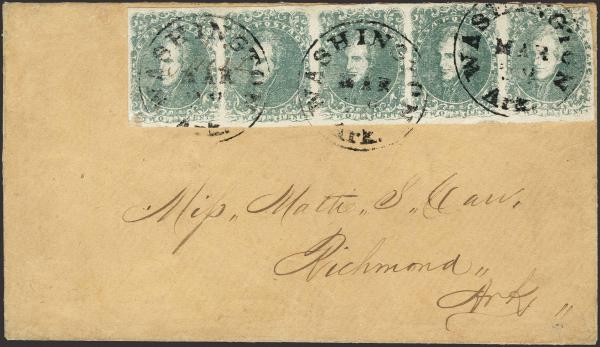 WASHINGTON
MAR
Ark.
WASHINGTON
MAR
Ark.
WASHINGTON
MAR
Ark.
Miss, Mattie, S, Carr,
Richmond,,
Ark,,